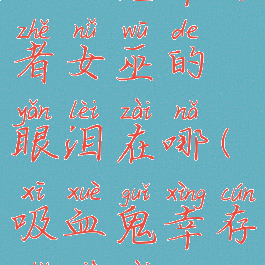 zhě nǚ wū de
者女巫的
yǎn lèi zài nǎ
眼泪在哪(
xī xuè guǐ xìng cún
吸血鬼幸存